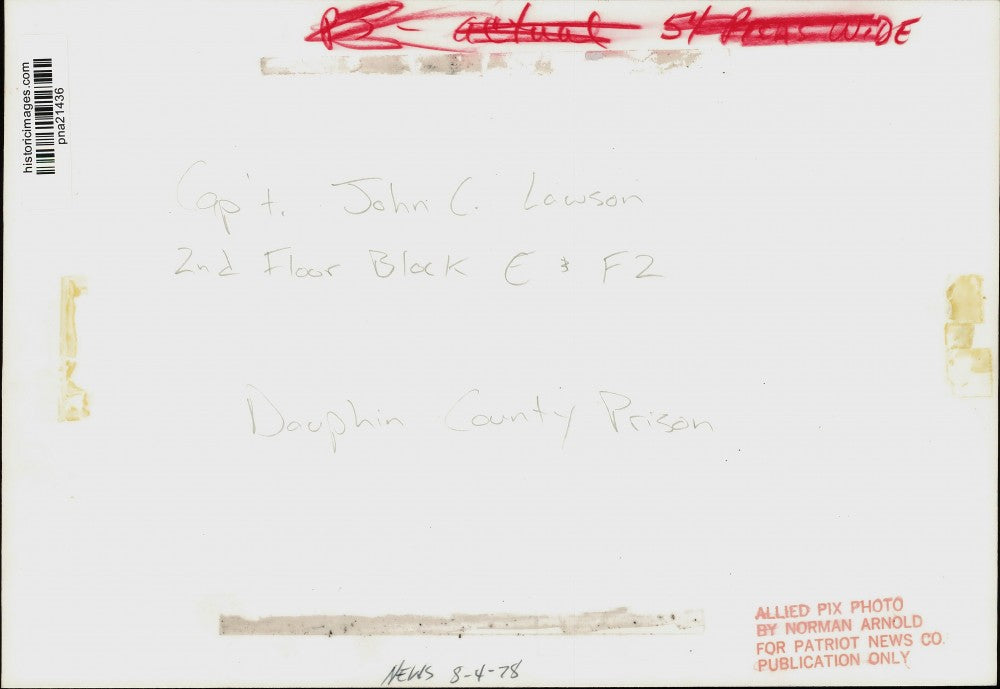 actual 54 Picas WIDE
historicimages.com
pna21436
Cap't. John C. Lawson
2nd Floor Block E & F2
Dauphin County Prison
ALLIED PIX PHOTO
BY NORMAN ARNOLD
FOR PATRIOT NEWS CO.
PUBLICATION ONLY
NEWS 8-4-78